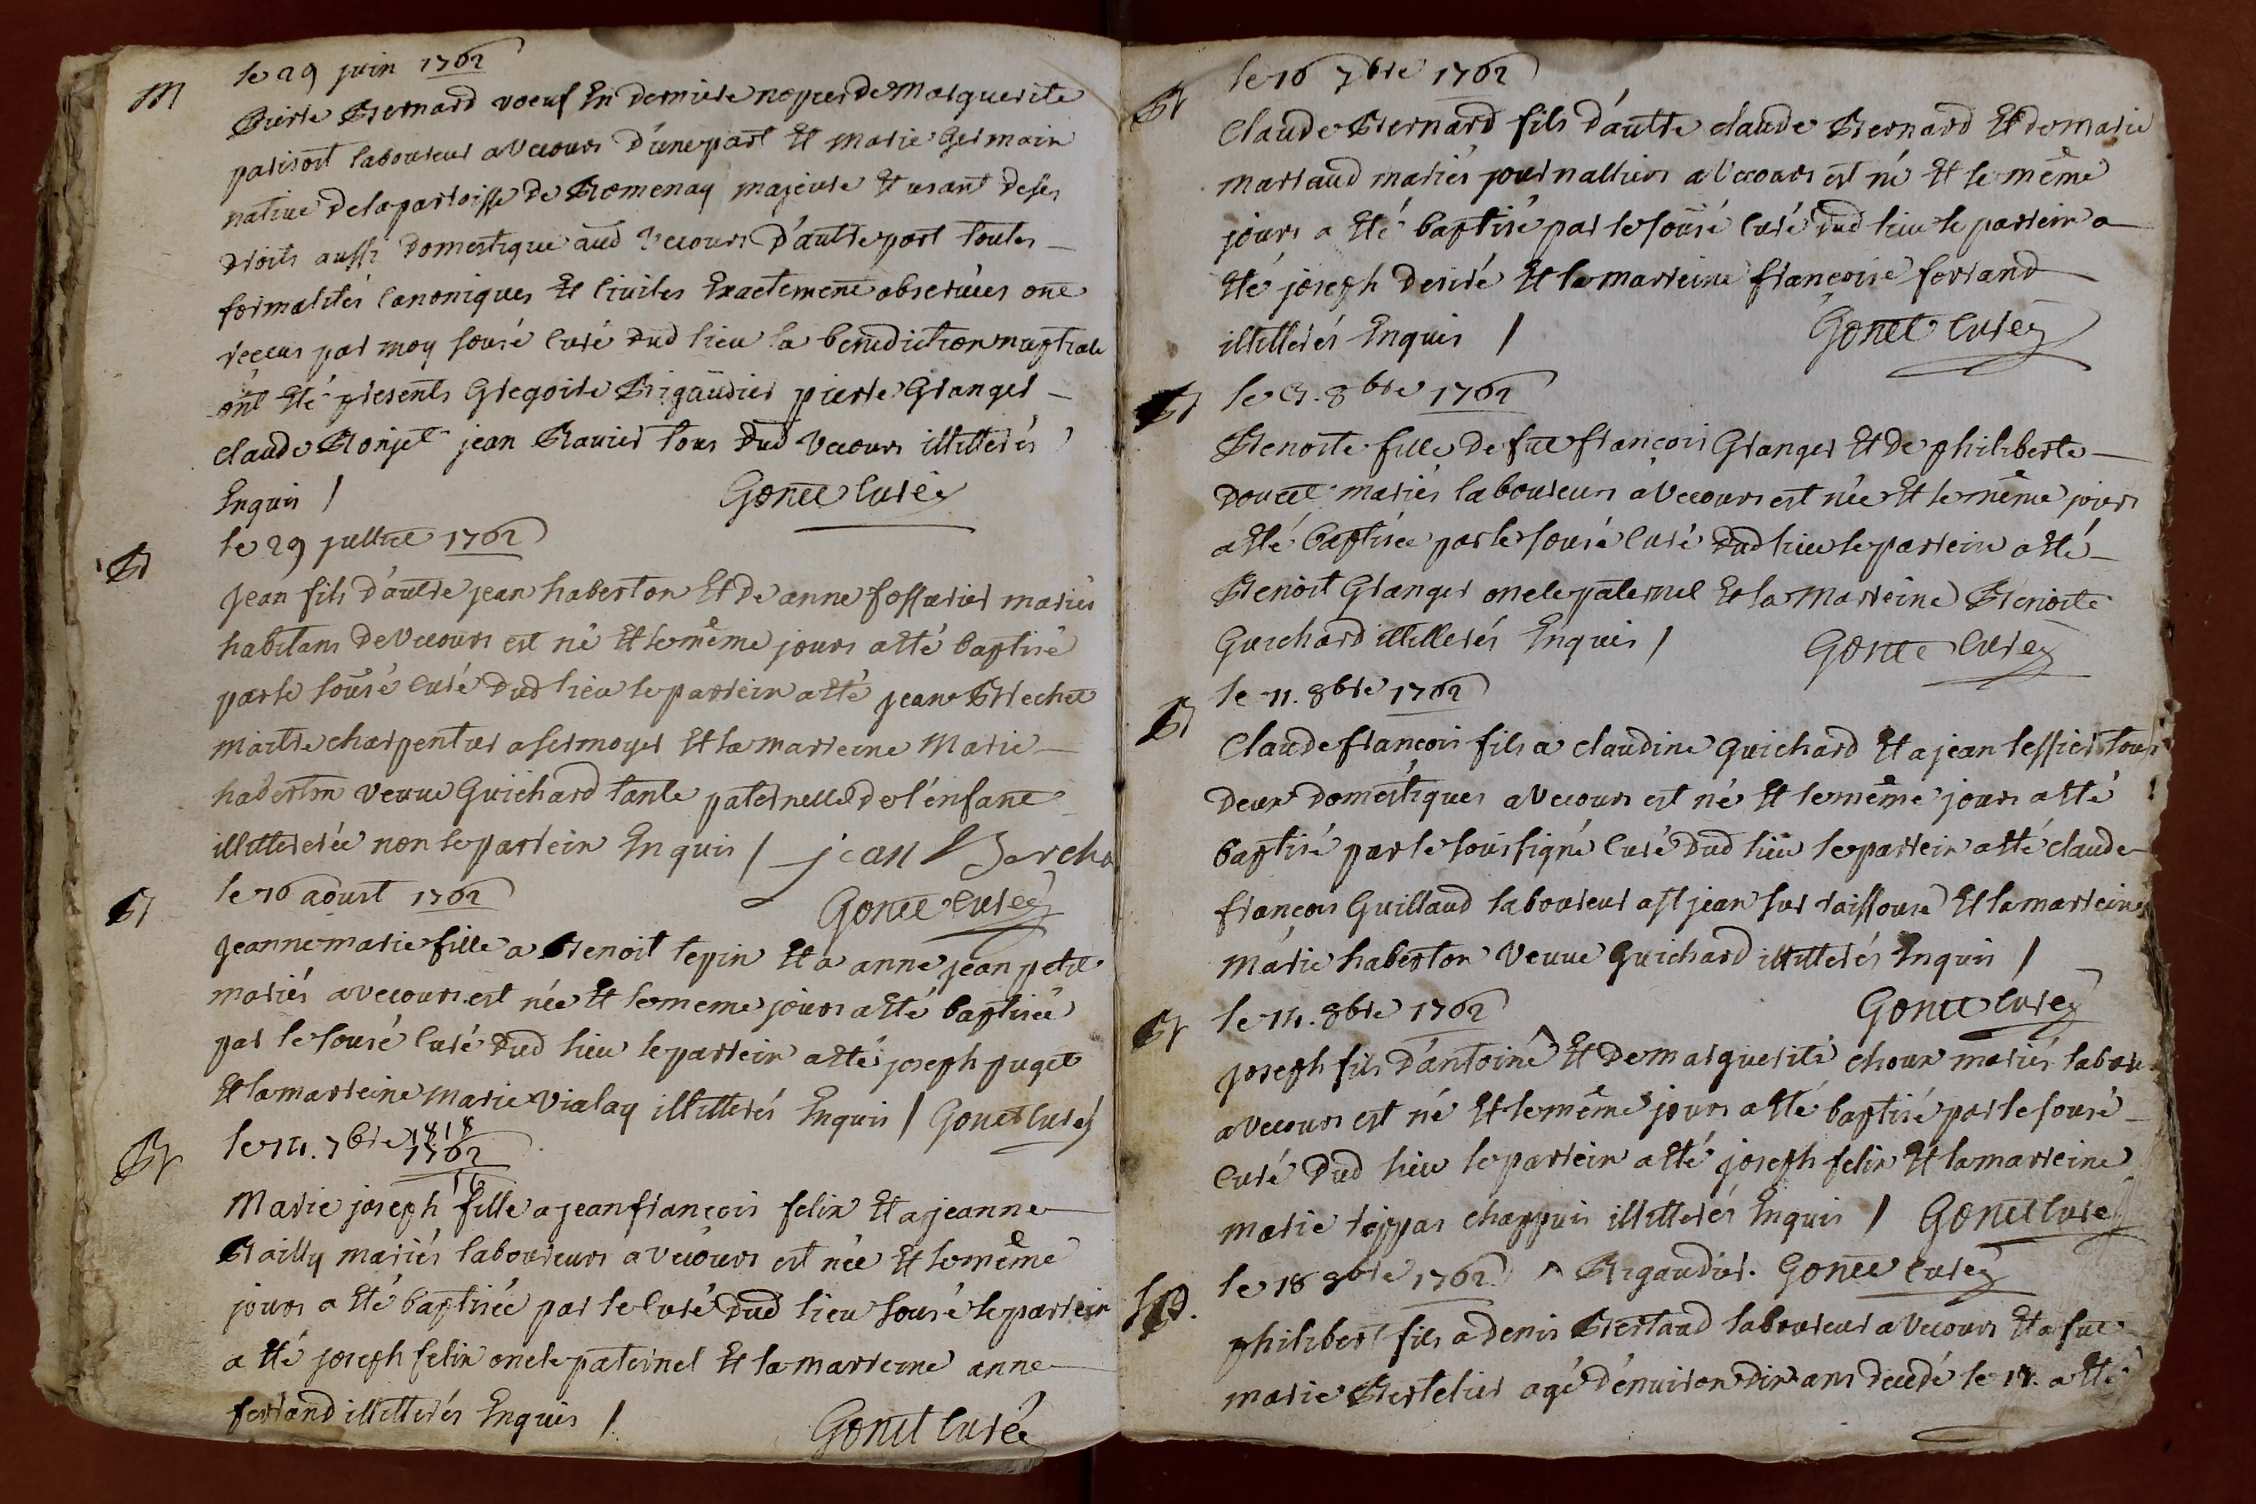 M
le 29 juin 1762
Pierre Bernard voeuf En derniere nopces de Marguerite
parisot laboureur a Vecours d'une part Et Marie Germain
native de la parroisse de Romenay majeure Et usant de ses
droits aussi domestique aud Vecours d'autre part toutes
formalités Canoniques Et Civiles Exactement observées ont
receus par moy sousé Curé dud lieu la benediction nuptiale
ont Eté presents Gregoire Rigaudier pierre Granger
claude Ronjet jean Ravier tous dud Vecours illitterés
Enquis / Gonet Curé
B
le 29 juillet 1762
jean fils d'autre jean haberton Et de anne fossurier mariés
habitans de Vecours est né Et le même jours a Eté baptisé
par le sousé Curé dud lieu le parrein a Eté jean Brechet
maitre charpentier a sermoyer Et la marreine Marie
haberton veuve Guichard tante paternelle de l'énfant
illitterée non le parrein Enquis / jean Berche
B
le 16 aoust 1762 Gonet Curé
jeanne marie fille a Benoit tepin Et a anne jeanpetit
mariés a vecours est née Et le meme jours a Eté baptisée
par le sousé Curé dud lieu le parrein a Eté joseph puget
Et la marreine marie Vialay illitterés Enquis / Gonet Curé
B
le 14. 7bre 1762
1818
Marie joseph fille a jean françois felix Et a jeanne
Bailly mariés laboureurs a Vecours est née Et le même
jours a Eté baptisée par le Curé dud lieu sousé le parrein
a Eté joseph felix oncle paternel Et la marreine anne
ferrand illitterés Enquis / Gonet Curé
B
le 16 7bre 1762
Claude Bernard fils d'autre claude Bernard Et de marie
marraud mariés journalliers a Vecours est né Et le même
jours a Eté baptisé par le sousé Curé dud lieu le parrein a
Eté joseph desiré Et la marreine françoise ferrand
illitterés Enquis / Gonet Curé
B
le 3. 8bre 1762
Benoite fille de fut françois Granger Et de philiberte
doucet mariés laboureurs a Vecours est née Et le même jours
a Eté baptisée par le sousé Curé dud lieu le parrein a Eté
Benoit Granger oncle paternel Et la marreine Benoite
Guichard illitterés Enquis / Gonet Curé
B
le 11. 8bre 1762
Claude françois fils a claudine Guichard Et a jean tessier tous
deux domestiques a Vecours est né Et le même jours a Eté
baptisé par le soussigné Curé dud lieu le parrein a Eté claude
françois Guillaud laboureur a st jean sur raissouse Et la marreine
marie haberton Veuve Guichard illitterés Enquis /
B
le 14. 8bre 1762 Gonet Curé
joseph fils d'antoine ^ Et de marguerite choux mariés labour
a vecours est né Et le même jours a Eté baptisé par le sousé
Curé dud lieu le parrein a Eté joseph felix Et la marreine
marie chappuis illitterés Enquis / Gonet Curé
le 18 8bre 1762 ^ Rigaudier. Gonet Curé
philibert fils a denis Bertaud laboureur a Vecours Et a fut
marie Bertelier agé d'énviron dix ans decedé le 17. a Eté